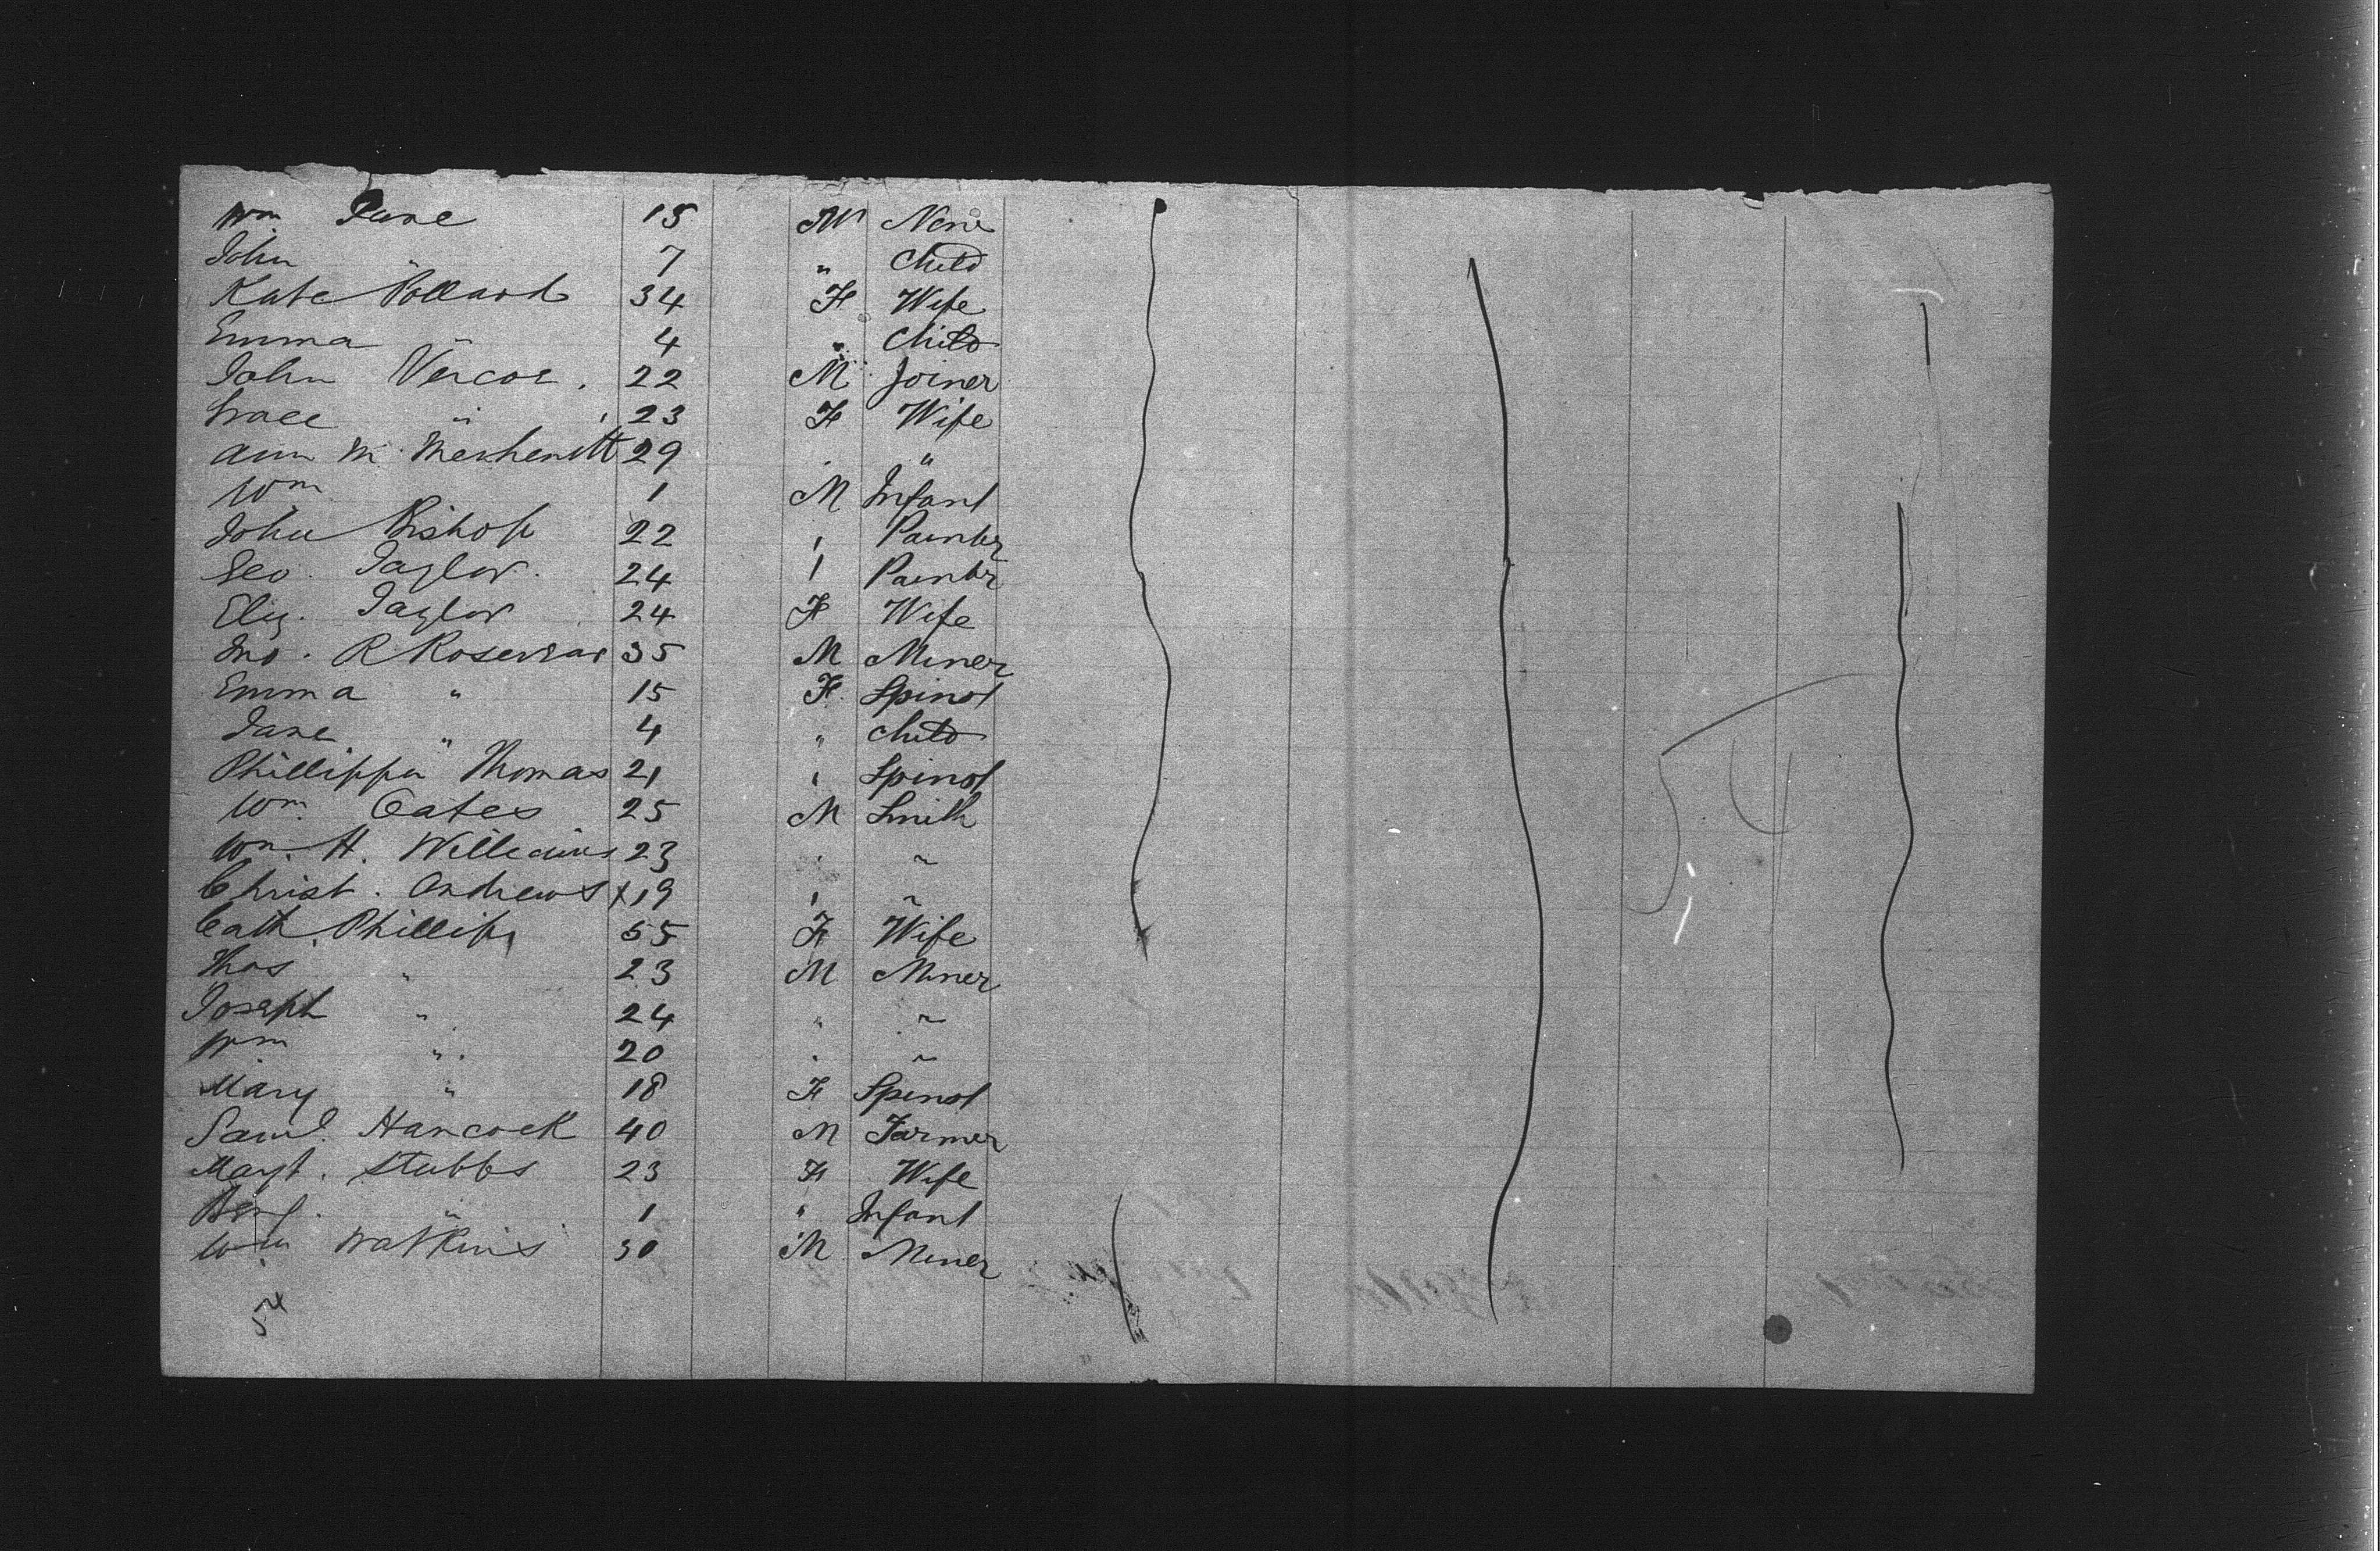 Wm Jane 15 M None
John " 7 " Child
Kate Pollard 34 F Wife
Emma " 4 " Child
John Vercoe. 22 M Joiner
Grace " 23 F Wife
Ann M 29 "
Wm 1 M Infant
John Bishop 22 " Painter
Geo. Taylor. 24 " Painter
Eliz. Taylor 24 F Wife
Jno. R Rosevear 35 M Miner
Emma " 15 F Spinst
Jane " 4 " Child
Phillippa Thomas 21 " Spinst
Wm. Oates 25 M Smith
Wm. H. Williams 23 " "
Christ. Andrews X 19 " "
Cath. Phillips 55 F Wife
Thos " 23 M Miner
Joseph " 24 " "
Wm " 20 " "
Mary " 18 F Spinst
Saml. Hancock 40 M Farmer
Margt. Stubbs 23 F Wife
Benj. " 1 " Infant
Wm Watkins 30 M Miner